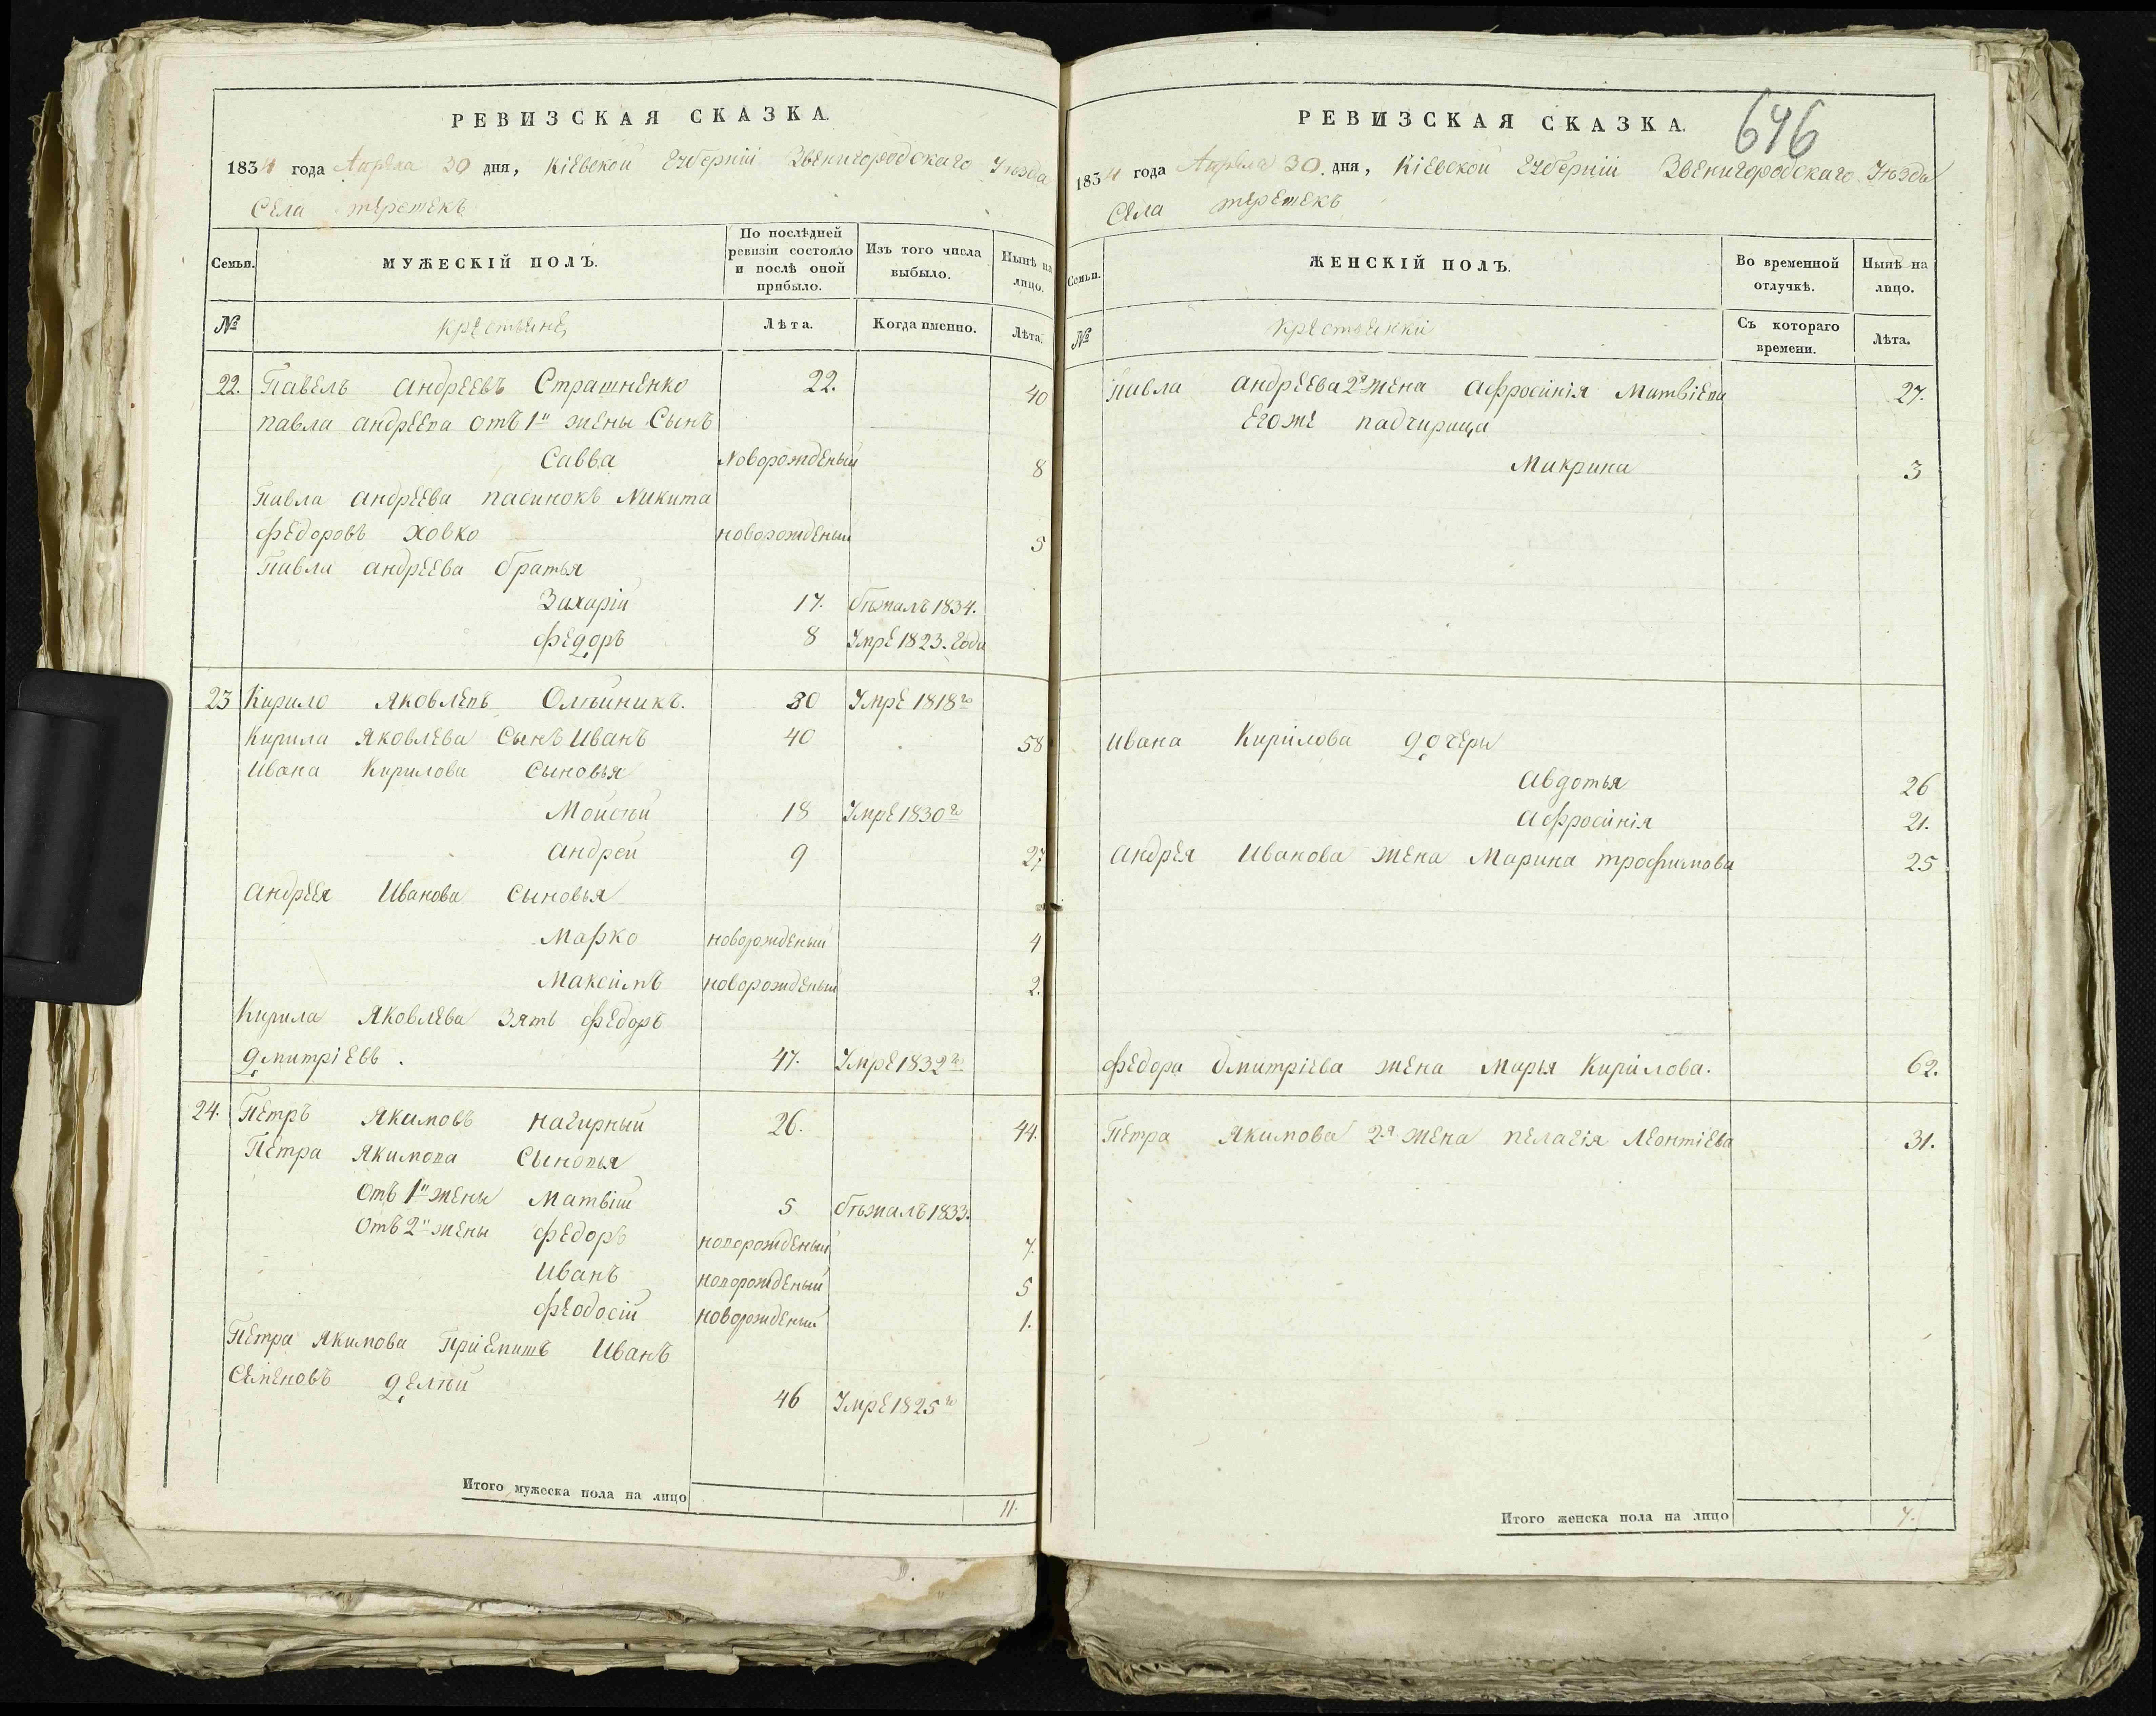 РЕВИЗСКАЯ СКАЗКА.
1834 года Апреля 30 дня, Кіевской Губерніи Звенигородскаго Уѣзда
Села теретекъ
Семьи.
МУЖЕСКІЙ ПОЛЪ.
По послѣдней ревизіи состояло и послѣ оной прибыло.
Изъ того числа выбыло.
Нынѣ на лицо.
№
крестьяне
Лѣта.
Когда именно.
Лѣта.
22. Павелъ андреевъ Страшненко 22. 40
павла андреева отъ 1й жены Сынъ
Савва новорожденый 8
Павла андреева пасинокъ Никита
федоровъ ховко новорожденый 5
Павла андреева братья
Захарій 17. бѣжалъ 1834.
федоръ 8 Умре 1823. года
23 Кирило яковлевъ Олѣйникъ. 80 Умре 1818го
Кирила яковлева Сынъ Иванъ 40 58
Ивана Кирилова Сыновья
Мойсѣй 18 Умре 1830го
андрей 9 27
андрея Иванова Сыновья
Марко новорожденый 4
Максимъ новорожденый 2.
Кирила яковлева зять федоръ
дмитріевъ. 47. Умре 1832го.
24. Петръ якимовъ нагирный 26. 44.
Петра якимова Сыновья
Отъ 1й жены Матвій 5 бѣжалъ 1833.
Отъ 2й жены федоръ новорожденый 7.
Иванъ новорожденый 5
феодосій новорожденый 1.
Петра якимова Пріемишъ Иванъ
Семеновъ делѣй 46 Умре 1825го
Итого мужеска пола на лицо 11.
646
РЕВИЗСКАЯ СКАЗКА.
1834 года Апреля 30. дня, Кіевской Губерніи Звенигородскаго Уѣзда
Села теретекъ
Семьи.
ЖЕНСКІЙ ПОЛЪ.
Во временной отлучкѣ.
Нынѣ на лицо.
№
крестьянки
Съ котораго времени.
Лѣта.
павла андреева 2я жена афросинія Матвіева 27.
Егоже падчирица
Макрина 3
Ивана Кирилова дочеры
авдотья 26
афросинія 21.
андрея Иванова жена Марина трофимова 25
федора дмитріева жена Марья Кирилова. 62.
Петра якимова 2я жена пелагія Леонтіева 31.
Итого женска пола на лицо 7.